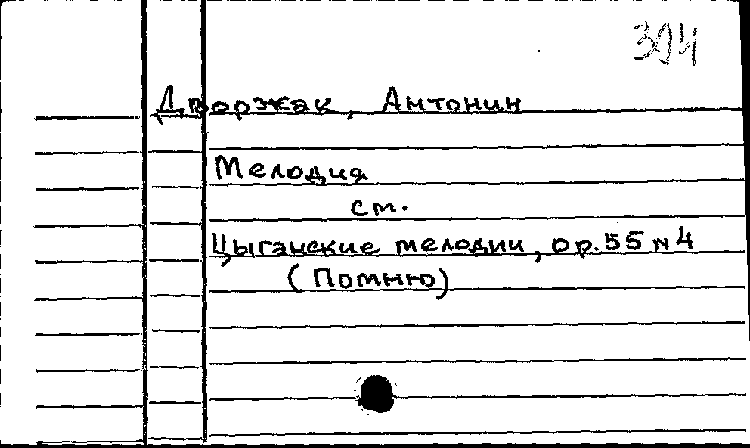 394
Дворжак, Антонин
Мелодия
см.
Цыганские мелодии, ор.55 №4
(Помню)